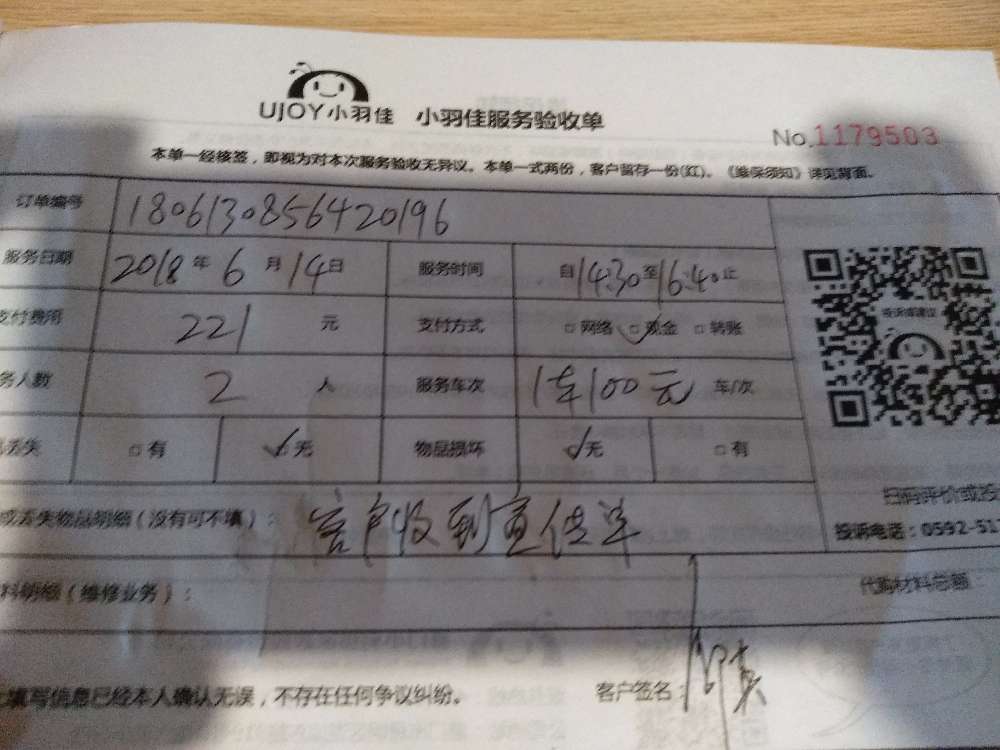 UJOY小羽佳 小羽佳服务验收单
No.1179503
本单一经核签，即视为对本次服务验收无异议。本单一式两份，客户留存一份(红)。《维保须知》详见背面。
订单编号 1806130856420196
服务日期 2018年6月14日 服务时间 自14:30至16:40止
支付费用 221 元 支付方式 □网络 ☑现金 □转账
务人数 2 人 服务车次 1车100元 车/次
丢失 □有 ☑无 物品损坏 ☑无 □有
投诉或建议
扫码评价或投
或丢失物品明细（没有可不填）：客户收到宣传单
投诉电话：0592-51
料明细（维修业务）： 代购材料总额
填写信息已经本人确认无误，不存在任何争议纠纷。 客户签名：